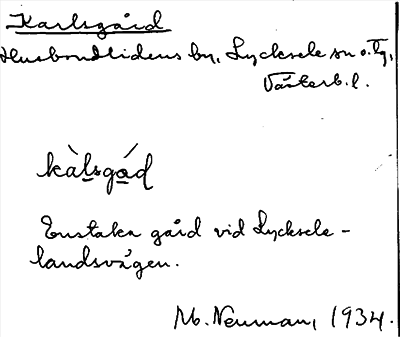 Karlsgård
Husbondlidens by, Lycksele sn o. Tg,
Västerb. l.
kàlsgód
Enstaka gård vid Lycksele-
landsvägen.
M. Neuman, 1934.